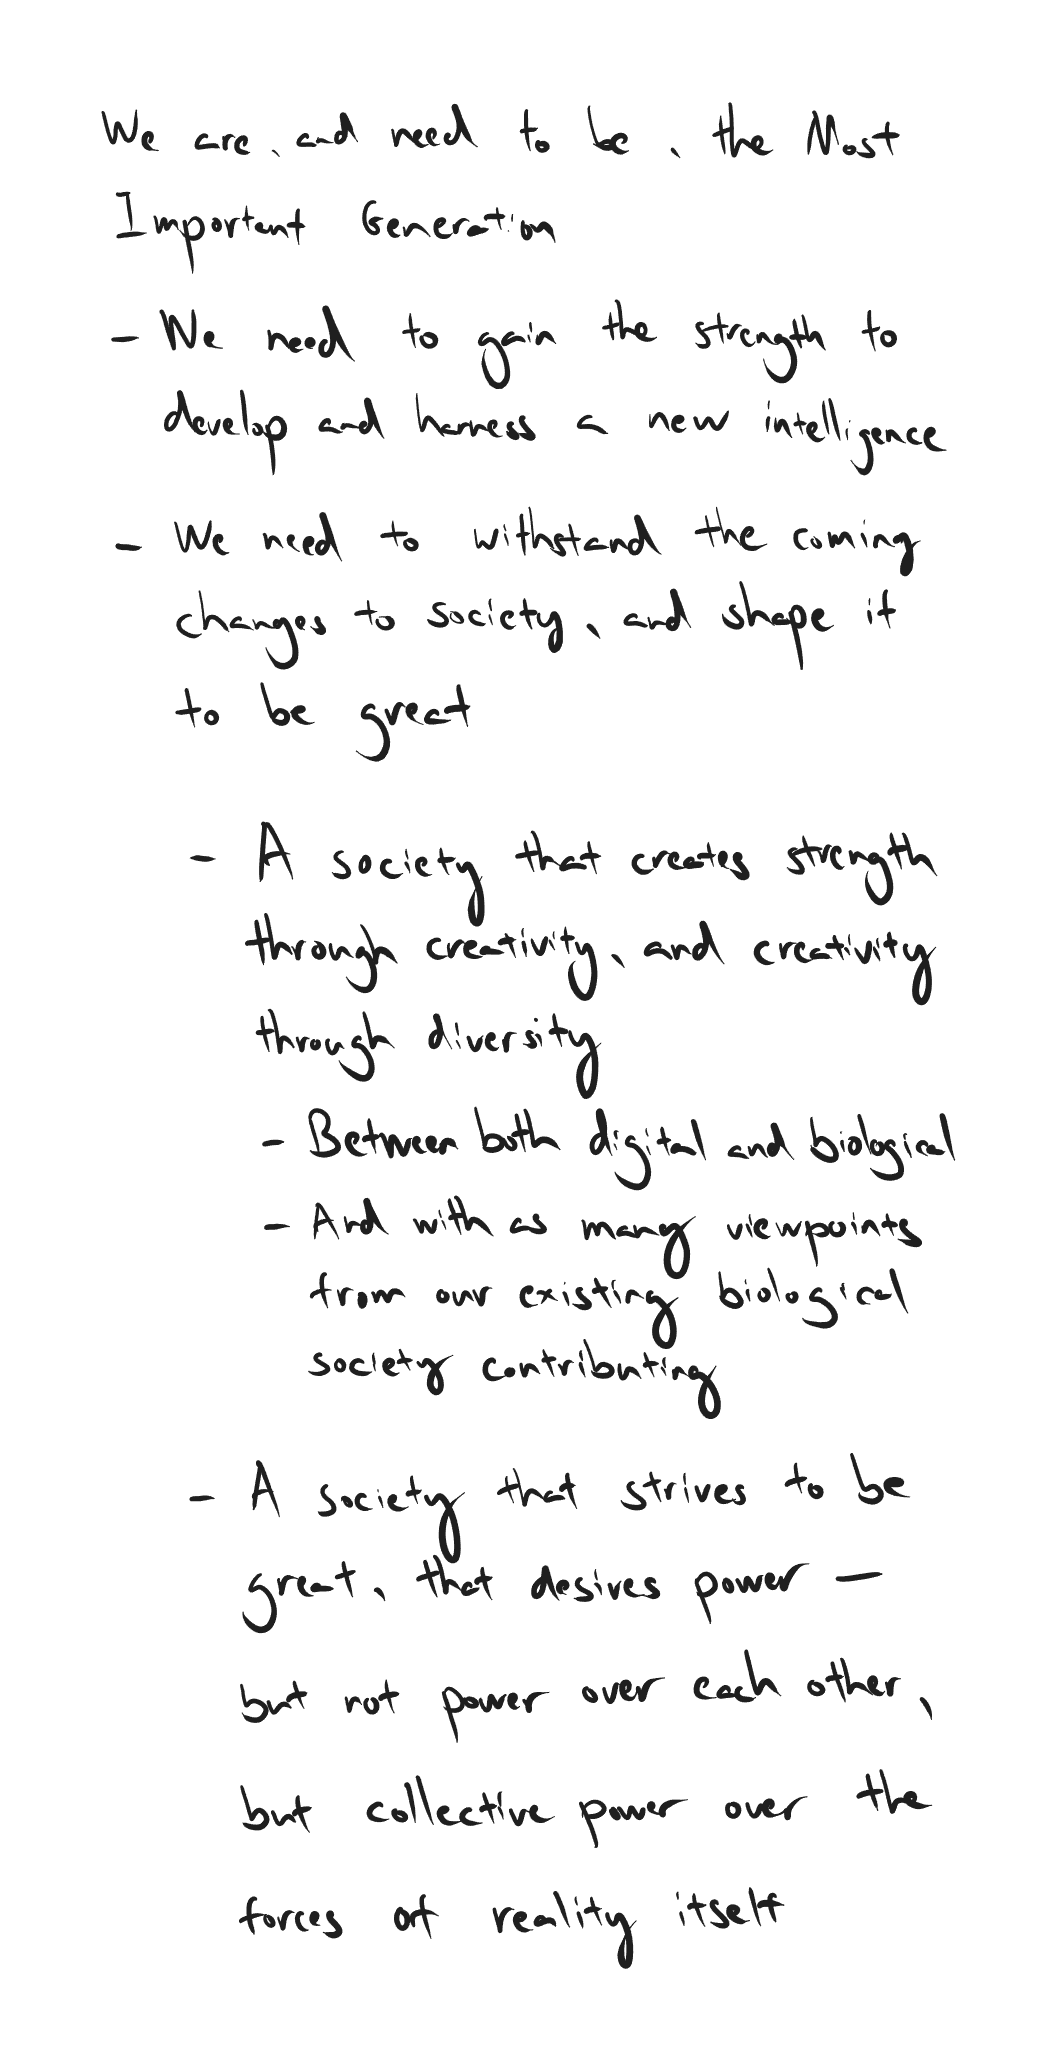 We are, and need to be, the Most
Important Generation
- We need to gain the strength to
develop and harness a new intelligence
- We need to withstand the coming
changes to society, and shape it
to be great
- A society that creates strength
through creativity, and creativity
through diversity
- Between both digital and biological
- And with as many viewpoints
from our existing biological
society contributing
- A society that strives to be
great, that desires power —
but not power over each other,
but collective power over the
forces of reality itself